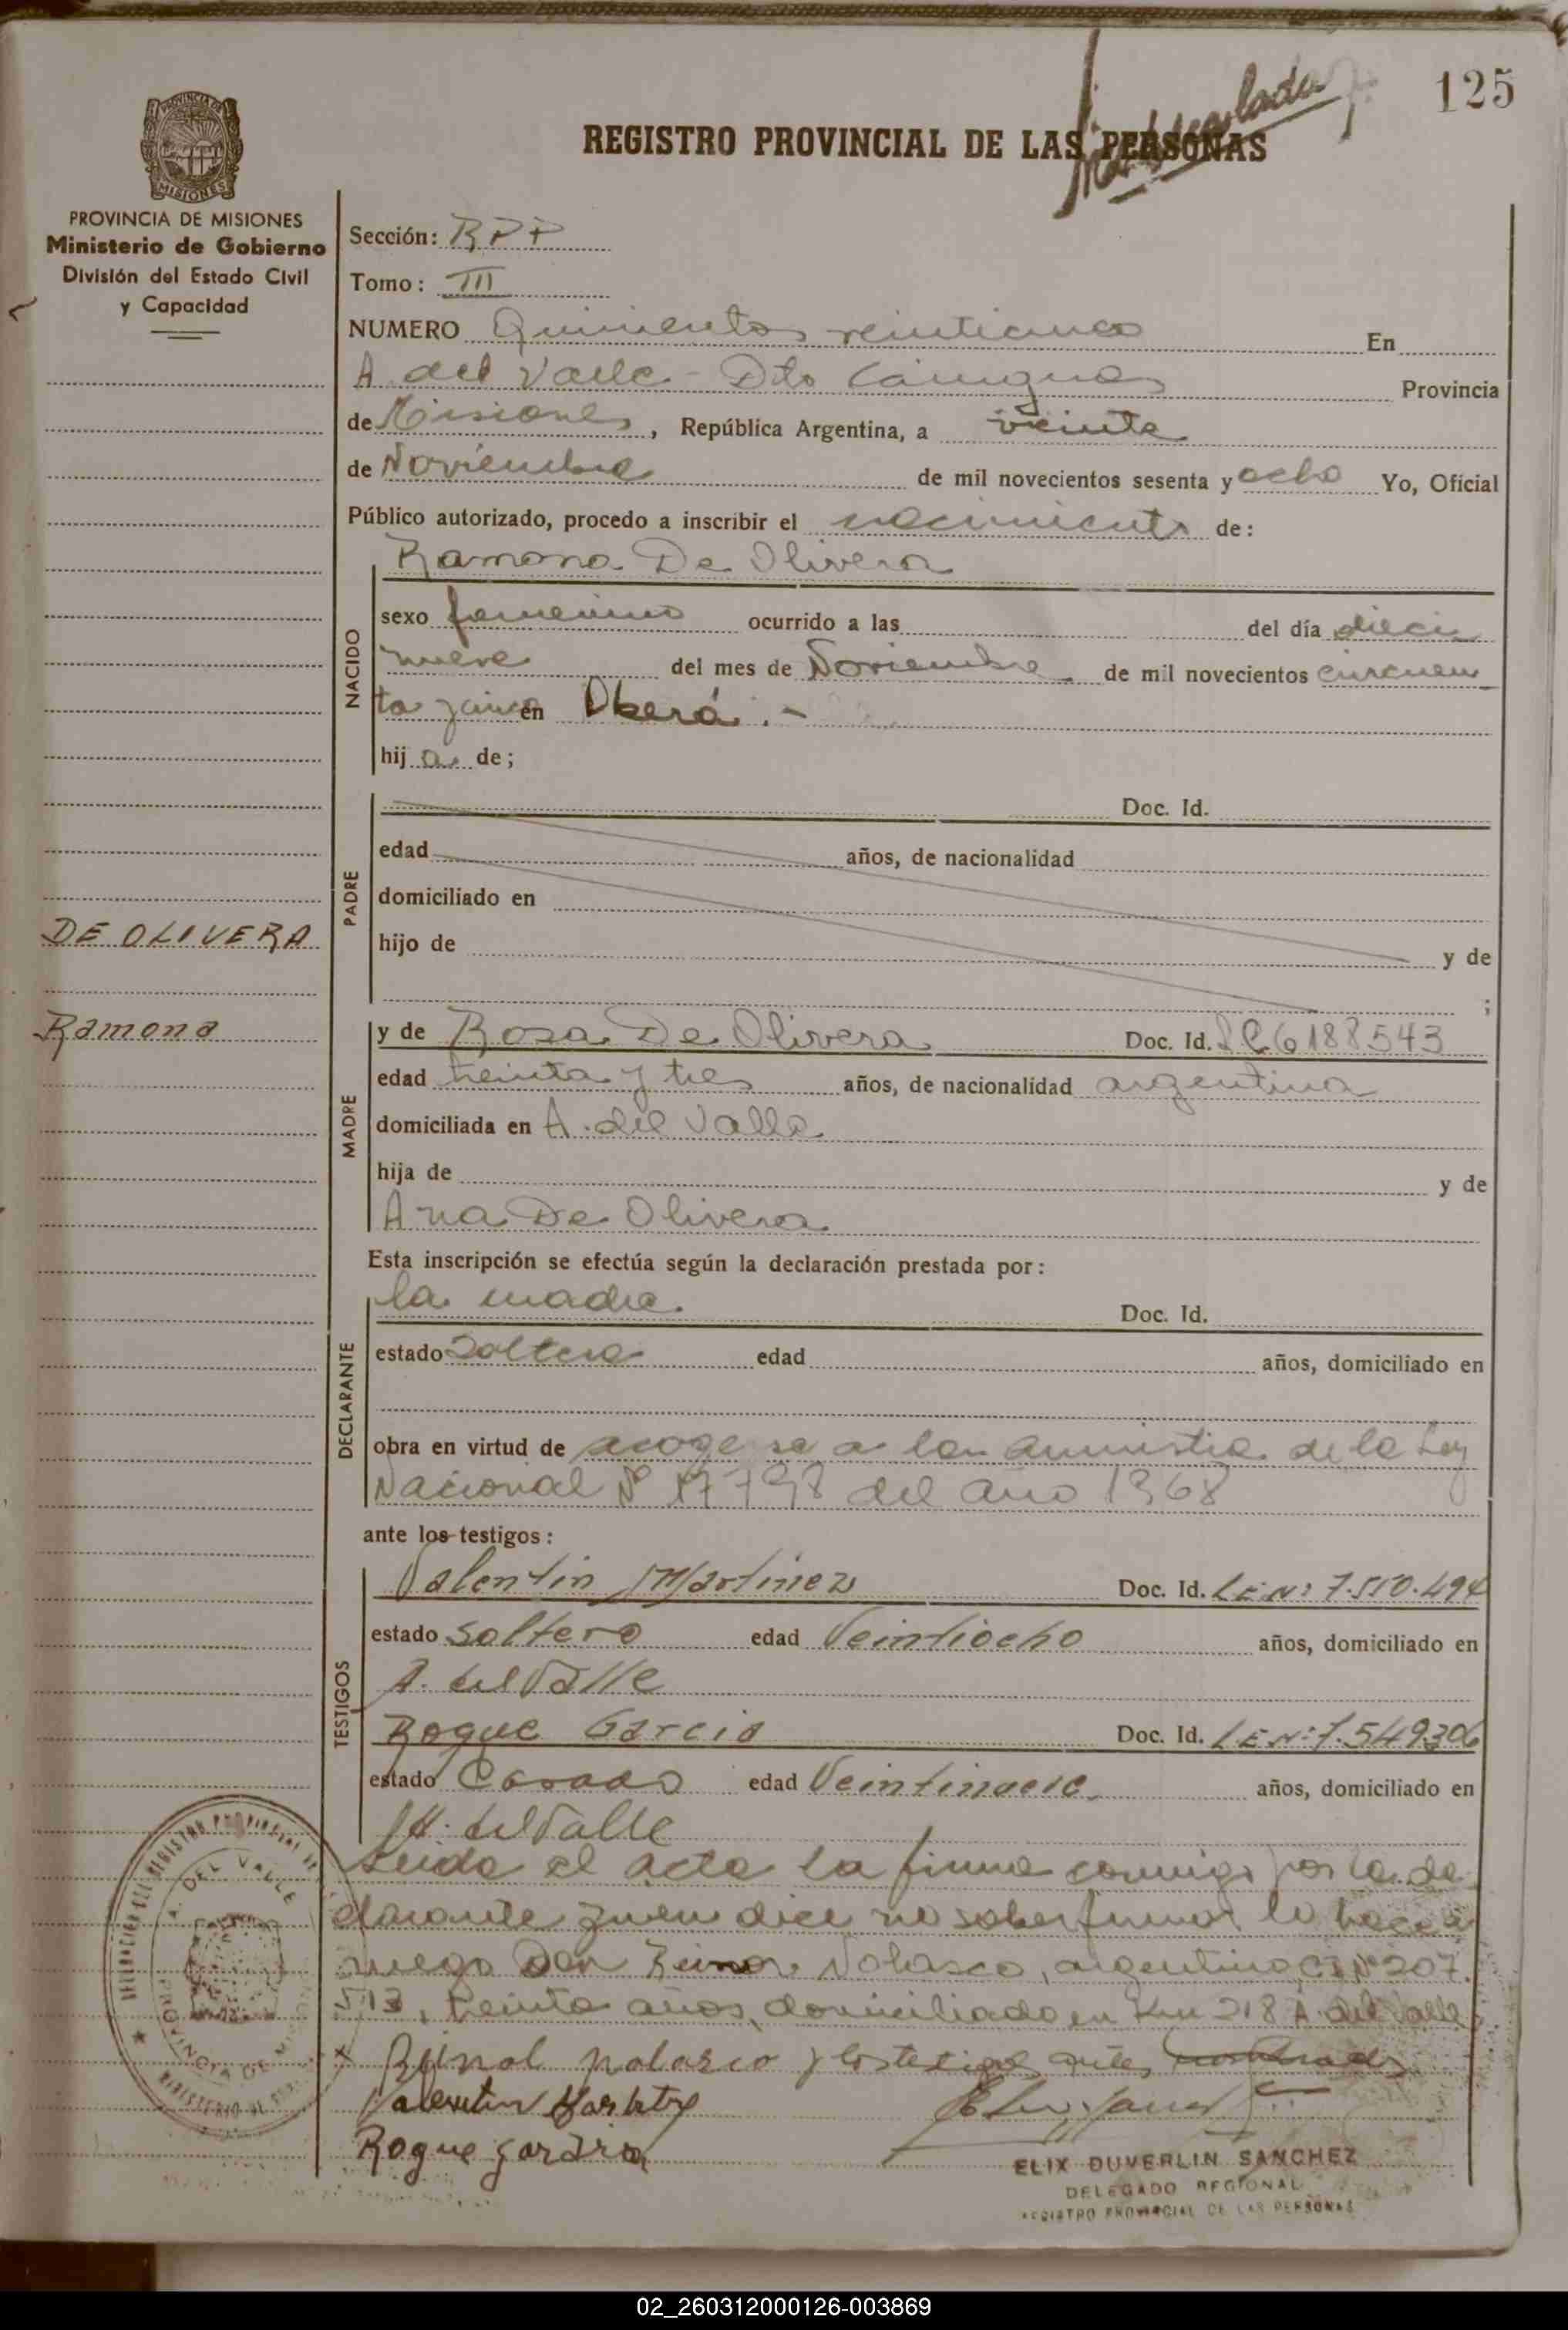 125
REGISTRO PROVINCIAL DE LAS PERSONAS
PROVINCIA DE
MISIONES
PROVINCIA DE MISIONES
Ministerio de Gobierno
División del Estado Civil
y Capacidad
Sección: RPP
Tomo: III
NUMERO Quinientos veinticinco En
A. del Valle - Dto Cainguas Provincia
de Misiones, República Argentina, a veinte
de Noviembre de mil novecientos sesenta y ocho Yo, Oficial
Público autorizado, procedo a inscribir el nacimiento de:
Ramona De Olivera
NACIDO
sexo femenino ocurrido a las del día dieci
nueve del mes de Noviembre de mil novecientos cincuen
ta y cinco en Oberá.-
hij a de;
PADRE
Doc. Id.
edad años, de nacionalidad
domiciliado en
hijo de y de
;
DE OLIVERA
Ramona
MADRE
y de Rosa De Olivera Doc. Id. LC 6188543
edad treinta y tres años, de nacionalidad argentina
domiciliada en A. del Valle
hija de y de
Ana De Olivera
Esta inscripción se efectúa según la declaración prestada por:
DECLARANTE
la madre. Doc. Id.
estado Soltera edad años, domiciliado en
obra en virtud de acoge se a la amnistia de la Ley
Nacional Nº 17798 del año 1968
ante los testigos:
TESTIGOS
Valentin Martinez Doc. Id. L.E.Nº: 7.510.494
estado soltero edad Veintiocho años, domiciliado en
A. del Valle
Roque Garcia Doc. Id. L.E.Nº: 7.549.306
estado Casado edad Veintinueve años, domiciliado en
A. del Valle
Leida el acta la firma conmigo por la de-
clarante quien dice no saber firmar lo hace a
ruego Don Nolasco, argentino CI Nº 207.
513, treinta años, domiciliado en Km 218 A. del Valle
y los testigos antes nombrados
Valentin Martinez
Roque Garcia
A. DEL VALLE
PROVINCIA DE MISIONES
ELIX DUVERLIN SANCHEZ
DELEGADO REGIONAL
REGISTRO PROVINCIAL DE LAS PERSONAS
02_260312000126-003869